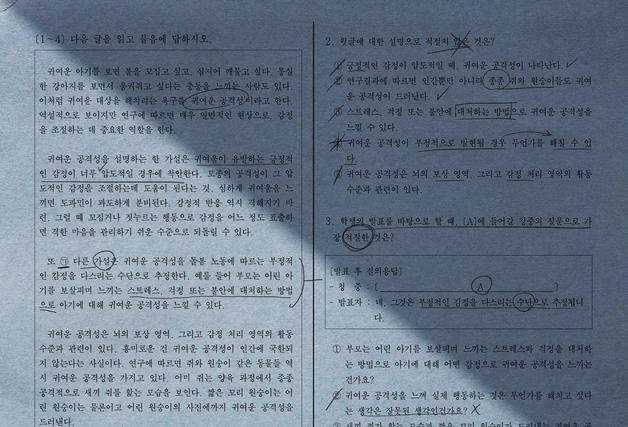 [1~4] 다음 글을 읽고 물음에 답하시오.
귀여운 아기를 보면 볼을 꼬집고 싶고, 심지어 깨물고 싶다. 몽실
한 강아지를 보면서 움켜쥐고 싶다는 충동을 느끼는 사람도 있다.
이처럼 귀여운 대상을 해치려는 욕구를 귀여운 공격성이라고 한다.
역설적으로 보이지만 연구에 따르면 매우 일반적인 현상으로, 감정
을 조절하는 데 중요한 역할을 한다.
귀여운 공격성을 설명하는 한 가설은 귀여움이 유발하는 긍정적
인 감정이 너무 압도적일 경우에 착안한다. 모종의 공격성이 그 압
도적인 감정을 조절하는데 도움이 된다는 것. 심하게 귀여움을 느
끼면 도파민이 과도하게 분비된다. 감정적 반응 역시 격해지기 마
련, 그럴 때 꼬집거나 짓누르는 행동으로 감정을 어느 정도 표출하
면 격한 마음을 관리하기 쉬운 수준으로 되돌릴 수 있다.
또 ㉠ 다른 가설은 귀여운 공격성을 돌봄 노동에 따르는 부정적
인 감정을 다스리는 수단으로 추정한다. 예를 들어 부모는 어린 아
기를 보살피며 느끼는 스트레스, 걱정 또는 불안에 대처하는 방법
으로 아기에 대해 귀여운 공격성을 느낄 수 있다.
귀여운 공격성은 뇌의 보상 영역, 그리고 감정 처리 영역의 활동
수준과 관련이 있다. 흥미로운 건 귀여운 공격성이 인간에 국한되
지 않는다는 사실이다. 연구에 따르면 쥐와 원숭이 같은 동물들 역
시 귀여운 공격성을 가지고 있다. 어미 쥐는 양육 과정에서 종종
공격적으로 새끼 쥐를 핥는 모습을 보인다. 짧은 꼬리 원숭이는 어
린 원숭이는 물론이고 어린 원숭이의 사진에까지 귀여운 공격성을
드러낸다.
2. 윗글에 대한 설명으로 적절치 않은 것은?
① 긍정적인 감정이 압도적일 때, 귀여운 공격성이 나타난다.
② 연구결과에 따르면 인간뿐만 아니라 종종 쥐와 원숭이들도 귀여
운 공격성이 드러난다.
③ 스트레스, 걱정 또는 불안에 대처하는 방법으로 귀여운 공격성을
느낄 수 있다.
④ 귀여운 공격성이 부정적으로 발현될 경우 무언가를 해칠 수 있
다.
⑤ 귀여운 공격성은 뇌의 보상 영역, 그리고 감정 처리 영역의 활동
수준과 관련이 있다.
3. 학생의 발표를 바탕으로 할 때, [A]에 들어갈 청중의 질문으로 가
장 적절한 것은?
[발표 후 질의응답]
- 청 중 : ( A )
- 발표자 : 네, 그것은 부정적인 감정을 다스리는 수단으로 추정됩니
다.
① 부모는 어린 아기를 보살피며 느끼는 스트레스와 걱정을 대처하
는 방법으로 아기에 대해 어떤 감정으로 귀여운 공격성을 느끼는
건가요?
② 귀여운 공격성을 느껴 실제 행동하는 것은 무언가를 해치고 싶다
는 생각은 잘못된 생각인건가요? X